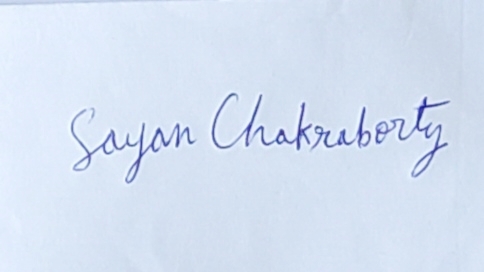 Sayan Chakraborty